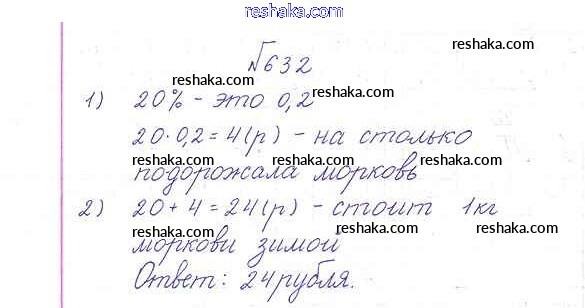 reshaka.com
№632
1) 20% - это 0,2
20·0,2=4(р) - на столько
подорожала морковь
2) 20+4=24(р) - стоит 1кг
моркови зимой
Ответ: 24рубля.
reshaka.com
reshaka.com
reshaka.com
reshaka.com
reshaka.com
reshaka.com
reshaka.com
reshaka.com
reshaka.com
reshaka.com
reshaka.com
reshaka.com